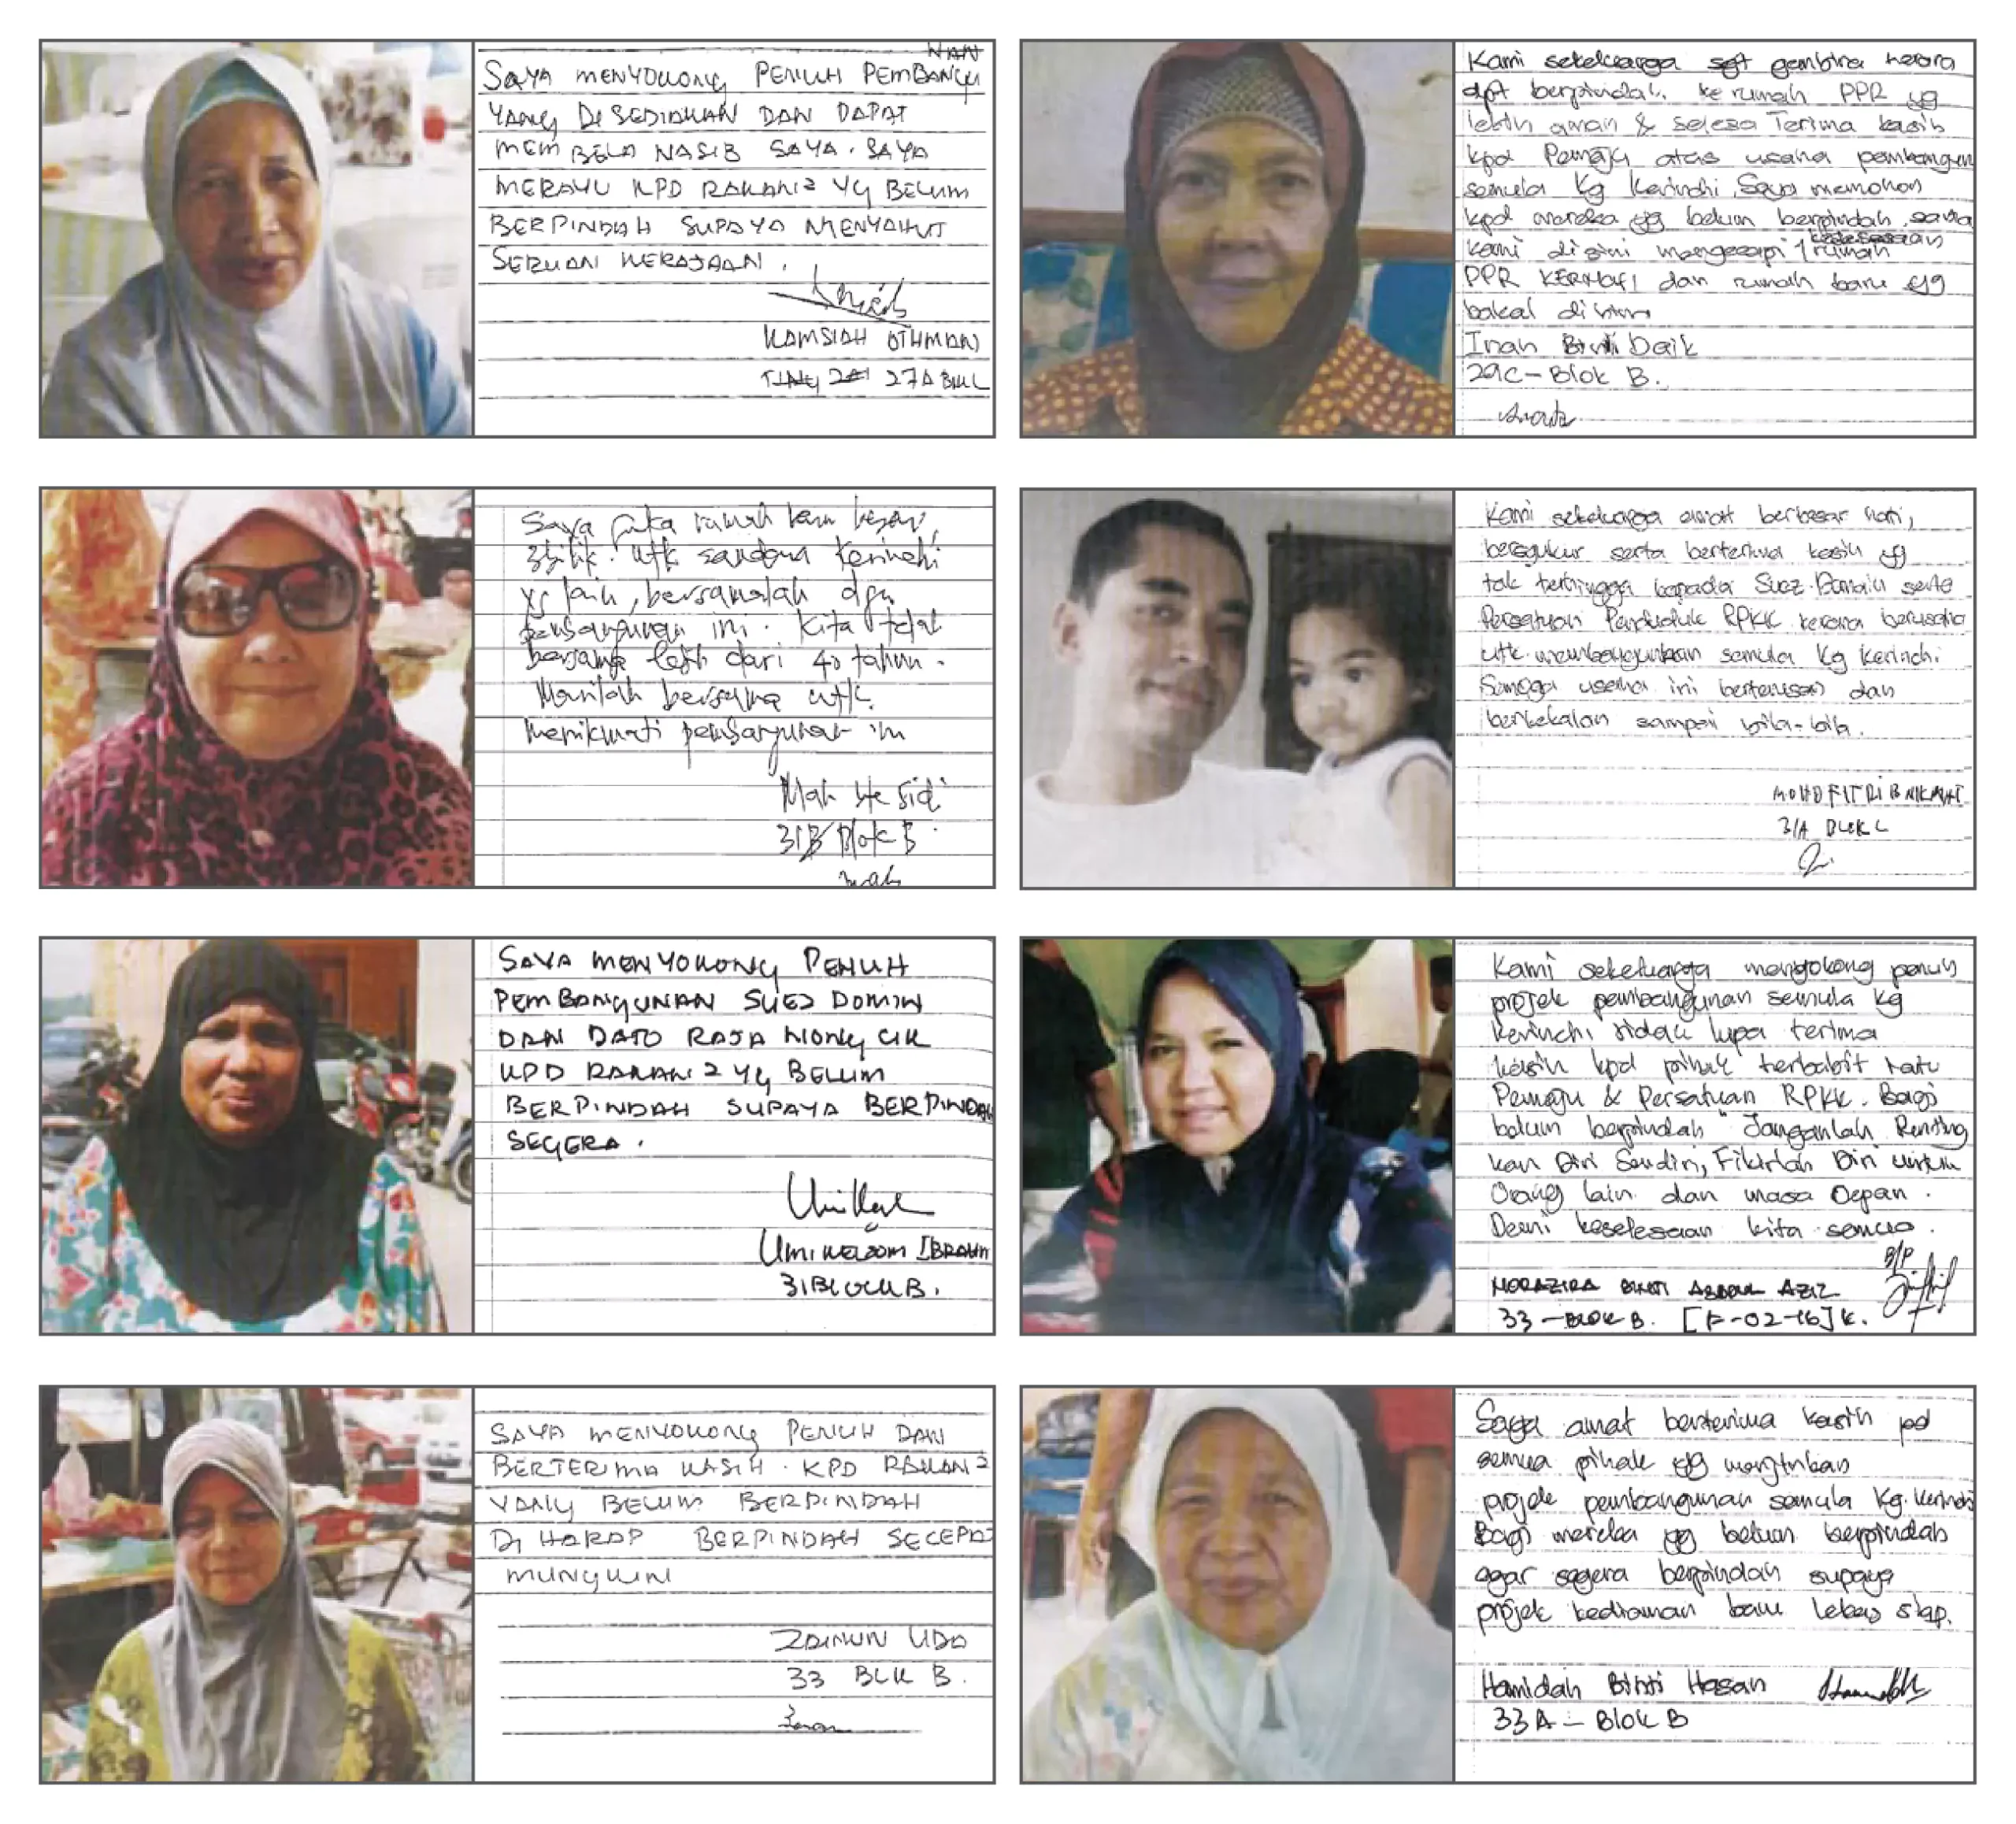 NAN
SAYA MENYOKONG PENUH PEMBANGU
YANG DI SEDIAKAN DAN DAPAT
MEMBELA NASIB SAYA. SAYA
MERAYU KPD RAKAN2 YG BELUM
BERPINDAH SUPAYA MENYAHUT
SERUAN KERAJAAN.
KAMSIAH OTHMAN
27A BLK L
Kami sekeluarga sgt gembira kerana
dpt berpindah ke rumah PPR yg
lebih aman & selesa Terima kasih
kpd Pemaju atas usaha pembangun
semula Kg Kerinchi. Saya memohon
kpd mereka yg belum berpindah, sama
keselesaan
kami di sini mengecapi rumah
PPR KERINCHI dan rumah baru yg
bakal di bina
Inah Binti Daik
29C-Blok B.
Saya suka rumah baru besar,
3 bilik. Utk saudara Kerinchi
yg lain, bersamalah dgn
pembangunan ini. Kita telah
bersama lebih dari 40 tahun.
Marilah bersama utk
menikmati pembangunan ini
Mah bte Sidi
31B Blok B
mah
Kami sekeluarga amat berbesar hati,
bersyukur serta berterima kasih yg
tak terhingga kepada Suez Domain serta
Persatuan Penduduk RPKK kerana berusaha
utk membangunkan semula Kg Kerinchi.
Semoga usaha ini berterusan dan
berkekalan sampai bila-bila.
MOHD FITRI B
31A BLOK L
SAYA MENYOKONG PENUH
PEMBANGUNAN SUEZ DOMIN
DAN DATO RAJA NONG CIK
KPD RAKAN2 YG BELUM
BERPINDAH SUPAYA BERPINDAH
SEGERA.
UMI KALSOM IBRAHIM
31 BLOCK B.
Kami sekeluarga menyokong penuh
projek pembangunan semula Kg
Kerinchi tidak lupa terima
kasih kpd pihak terbabit iaitu
Pemaju & Persatuan RPKK. Bagi
belum berpindah "Janganlah Penting
kan Diri Sendiri, Fikirlah Diri untuk
Orang lain dan masa Depan.
Demi keselesaan kita semua.
B/P
NORAZIRA BINTI ABDUL AZIZ
33-BLOK B. [P-02-16] K.
SAYA MENYOKONG PENUH DAN
BERTERIMA KASIH. KPD RAKAN2
YANG BELUM BERPINDAH
DI HARAP BERPINDAH SECEPAT
MUNGKIN
ZAINUN UDA
33 BLK B.
Saya amat berterima kasih pd
semua pihak yg menjayakan
projek pembangunan semula Kg. Kerinchi
Bagi mereka yg belum berpindah
agar segera berpindah supaya
projek kediaman baru lekas siap.
Hamidah Binti Hasan
33A - Blok B